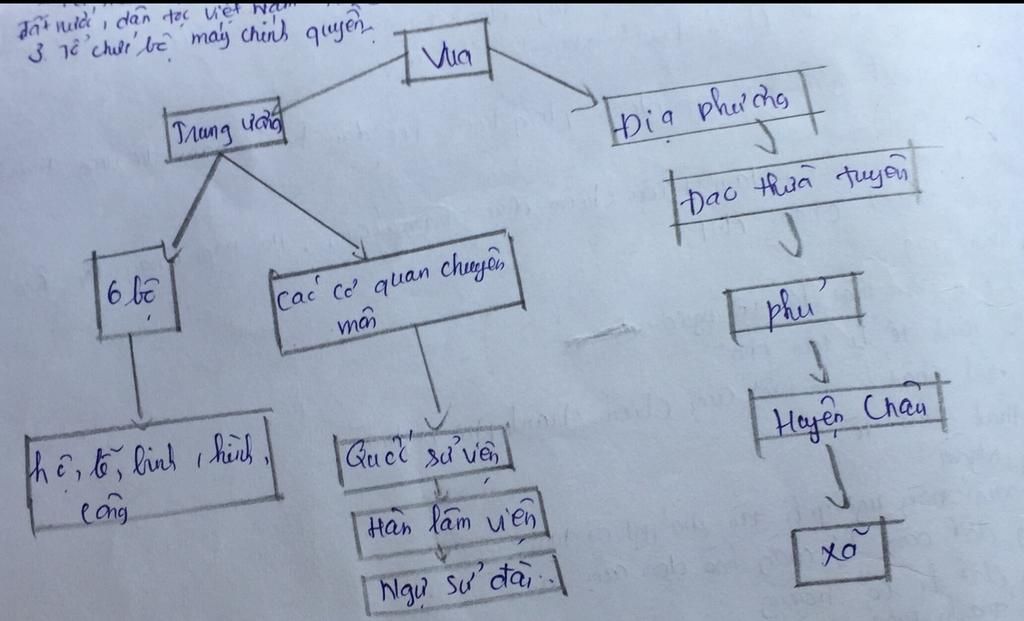 đất nước, dân tộc Việt Nam
3. Tổ chức bộ máy chính quyền
Vua
Trung ương
Địa phương
Đạo thừa tuyên
6 bộ
các cơ quan chuyên
môn
phủ
Huyện Châu
hộ, lễ, binh, hình,
công
Quốc sử viện
Hàn lâm viện
Ngự sử đài..
xã